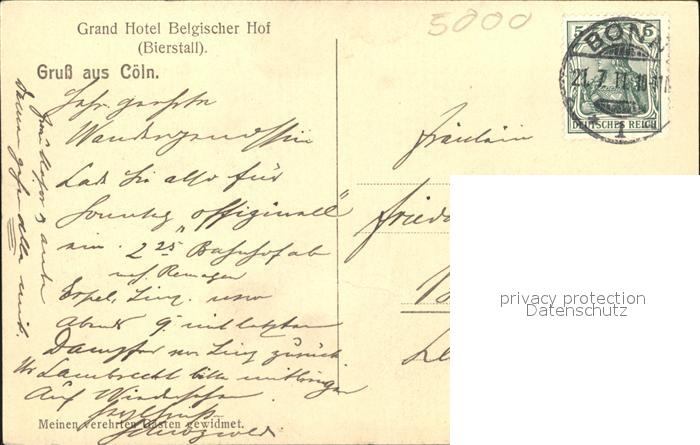 Grand Hotel Belgischer Hof
(Bierstall).
Gruß aus Cöln.
5000
5 5
BONN
21.7.11
1
DEUTSCHES REICH
Sehr geehrte
Wandergenossin
Lade Sie also für
Sonntag "offiziell"
ein. 2 25 Bahnhof ab
nach Remagen
Erpel, Linz. usw
Abends 9 mit letztem
Dampfer von Linz zurück
Lambrecht bitte mitbringen
Auf Wiedersehen
Fräulein
privacy protection
Datenschutz
Meinen verehrten Gästen gewidmet.